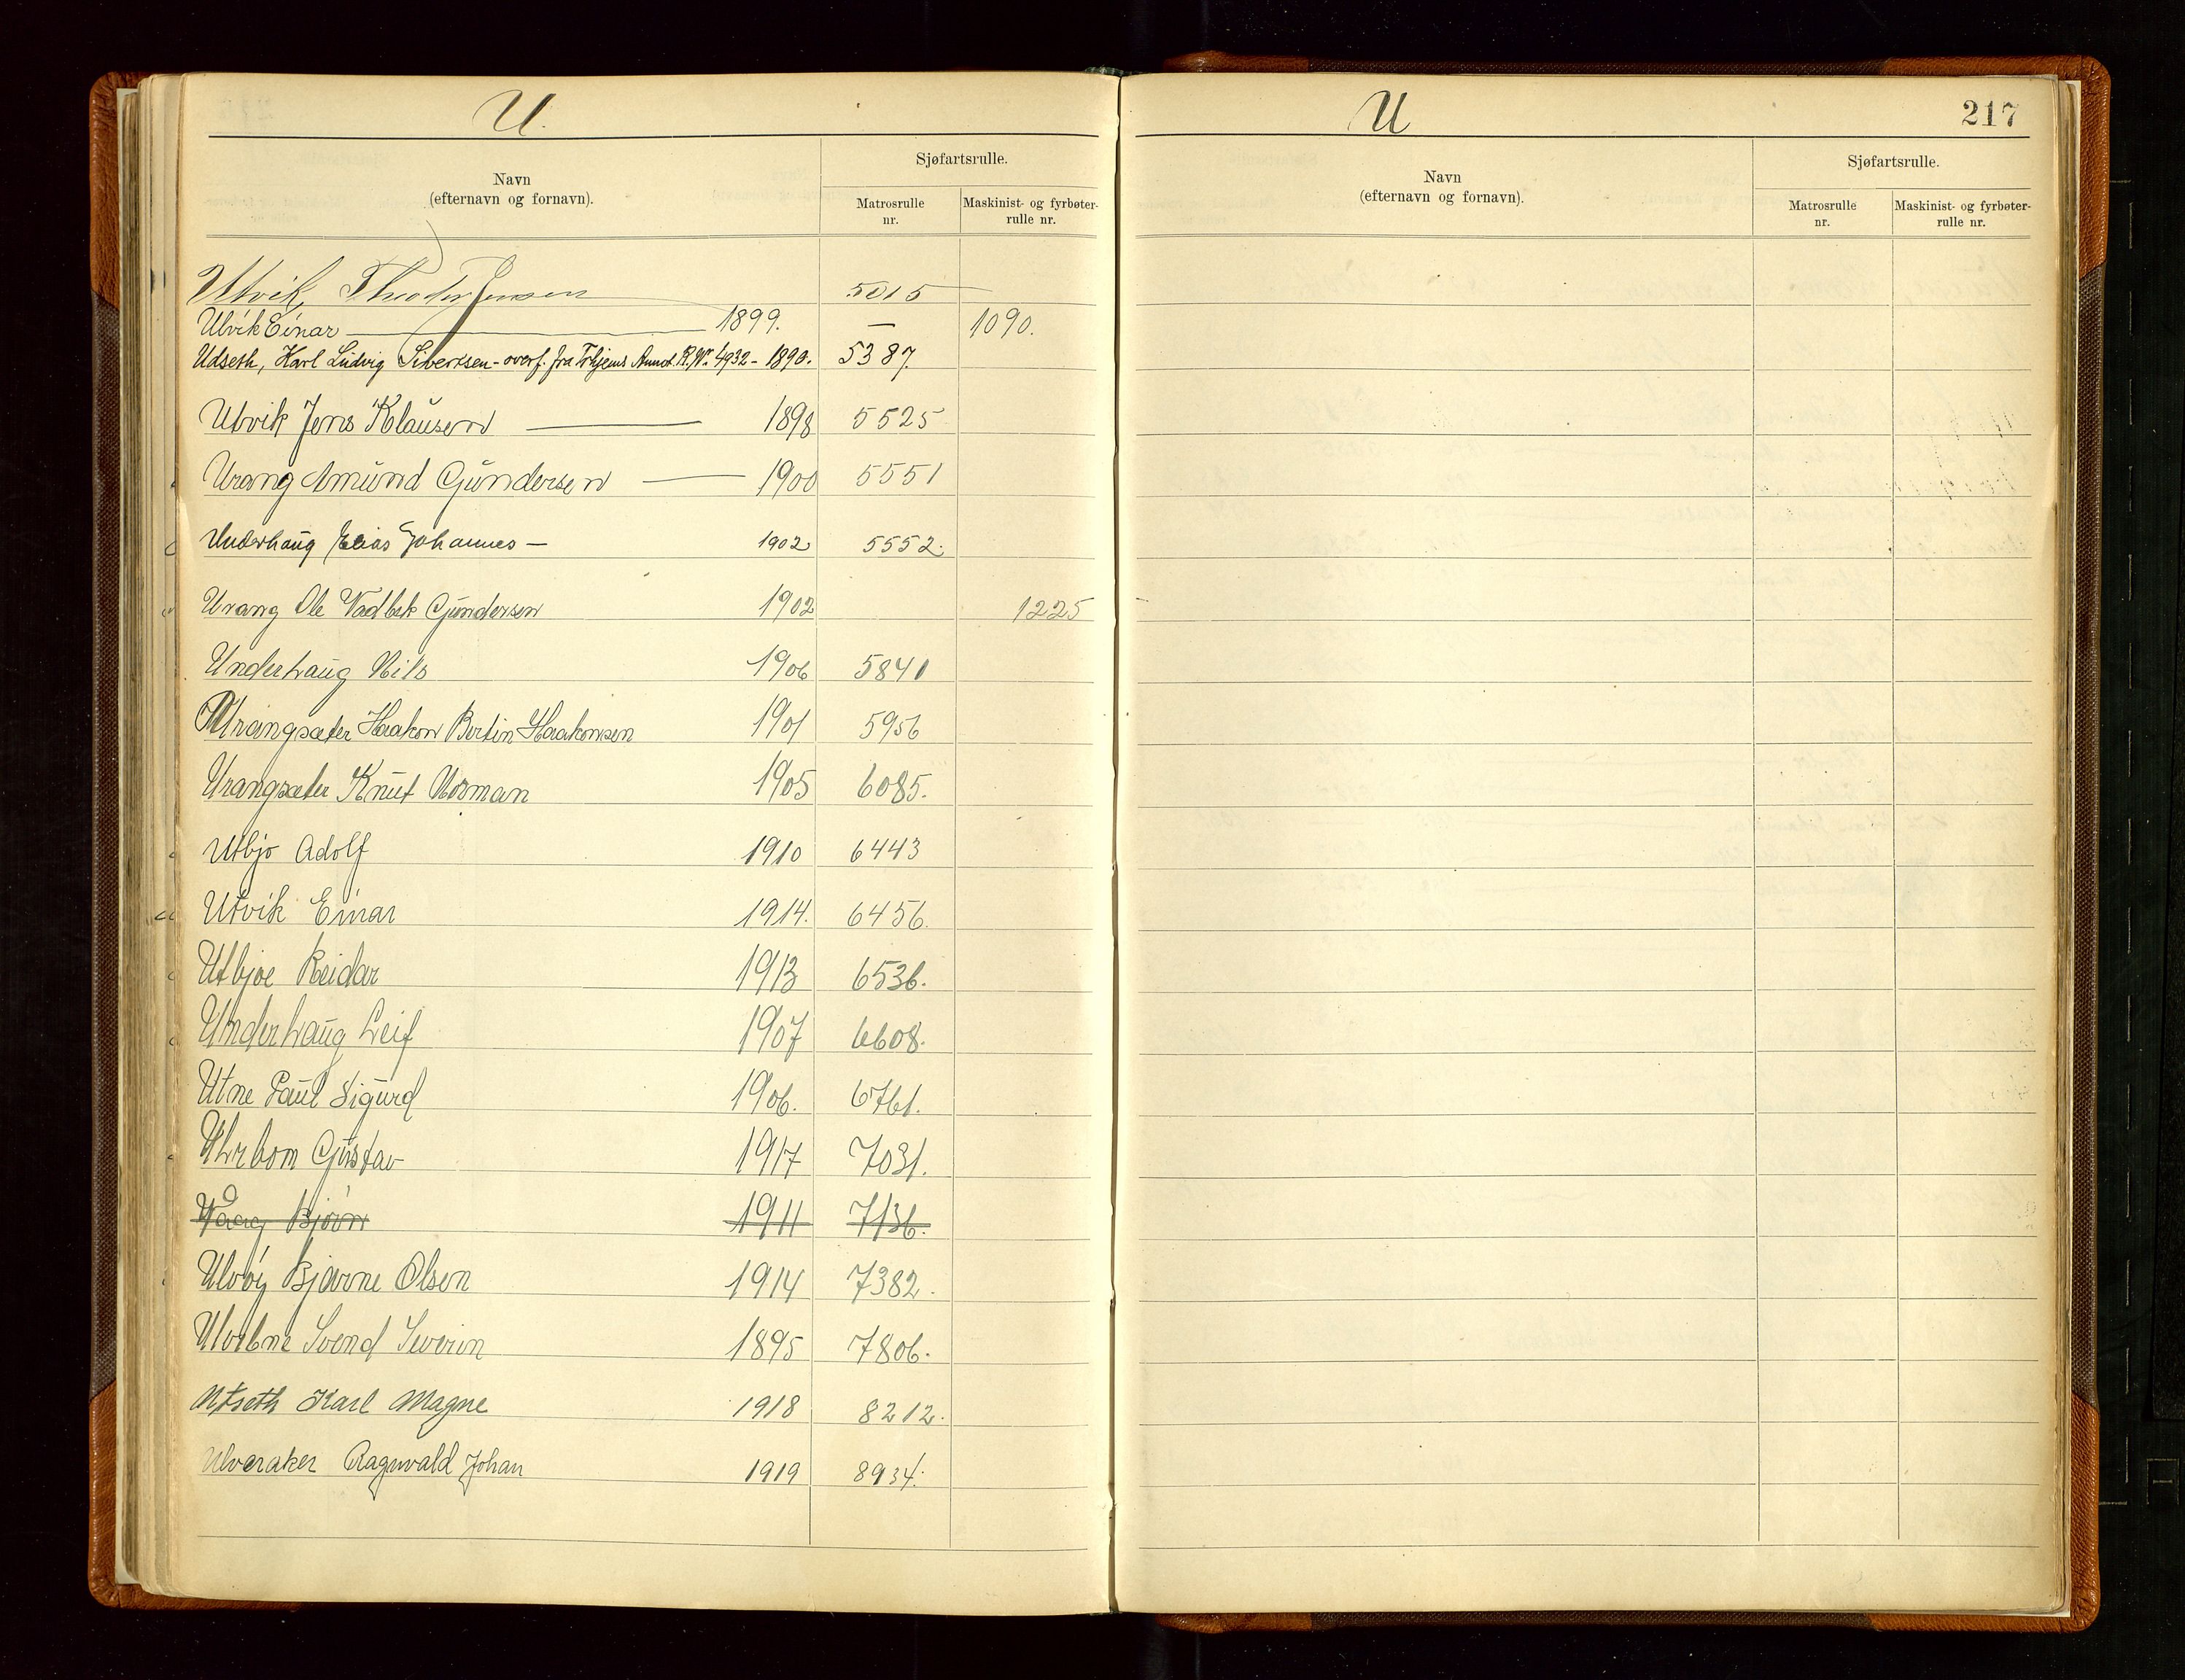 U.
Sjøfartsrulle.
Navn
(efternavn og fornavn).
Matrosrulle
nr.
Maskinist- og fyrbøter-
rulle nr.
Utvik, Theodor Jensen 5015
Ulvik Einar — 1899. — 1090.
Udseth, Karl Ludvig Sivertsen - overf. fra Trhjems Annot. R. Nr. 4932 - 1890. 5387.
Utvik Jens Klausen — 1898 5525
Urang Amund Gundersen — 1900 5551
Underhaug Elias Johannes — 1902 5552.
Urang Ole Vadbek Gundersen 1902 1225
Underhaug Nils 1906 5841
Urangsæter Haakon Bertin Haakonsen 1901 5956
Urangsæter Knut Norman 1905 6085.
Utbjo Adolf 1910 6443
Utvik Einar 1914. 6456.
Utbjoe Reidar 1913 6536.
Underhaug Leif 1907 6608.
Utne Paul Sigurd 1906. 6761.
Uhrbom Gustav 1917 7031.
Bjørn 1911 7136.
Ulvøy Bjarne Olsen 1914 7382.
Svend Severin 1895 7806.
Utseth Karl Magne 1918 8212.
Ulveraker Ragnvald Johan 1919 8934.
U
217
Sjøfartsrulle.
Navn
(efternavn og fornavn).
Matrosrulle
nr.
Maskinist- og fyrbøter-
rulle nr.